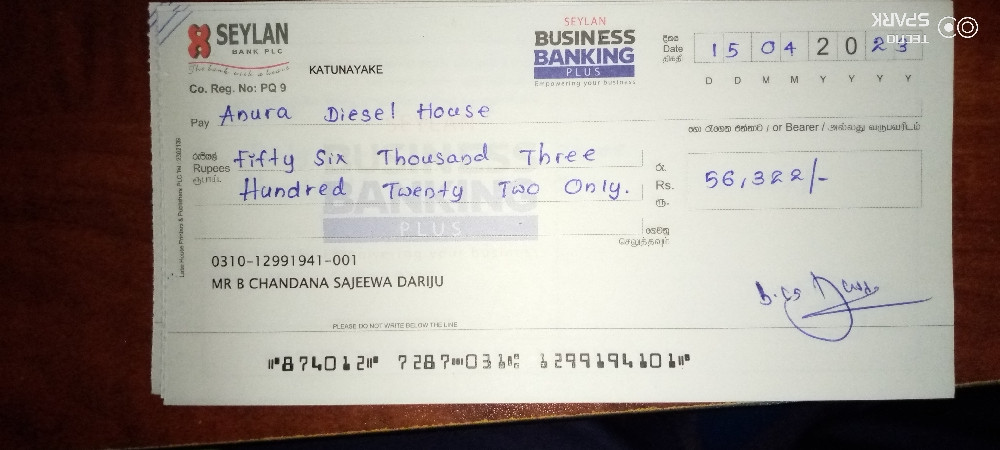 SEYLAN
BANK PLC
The bank with a heart
Co. Reg. No: PQ 9
KATUNAYAKE
SEYLAN
BUSINESS
BANKING
PLUS
Empowering your business
දිනය
Date
திகதி
15 04 2023
D D M M Y Y Y Y
TECNO
SPARK
Pay Anura Diesel House
හෝ රැගෙන එන්නාට / or Bearer / அல்லது வருபவரிடம்
රුපියල්
Rupees
ரூபாய்
Fifty Six Thousand Three
Hundred Twenty Two Only.
රු.
Rs.
ரூ.
56,322/-
ගෙවනු
செலுத்தவும்
BUSINESS
BANKING
PLUS
0310-12991941-001
MR B CHANDANA SAJEEWA DARIJU
PLEASE DO NOT WRITE BELOW THE LINE
874012 7287 031 1299194101